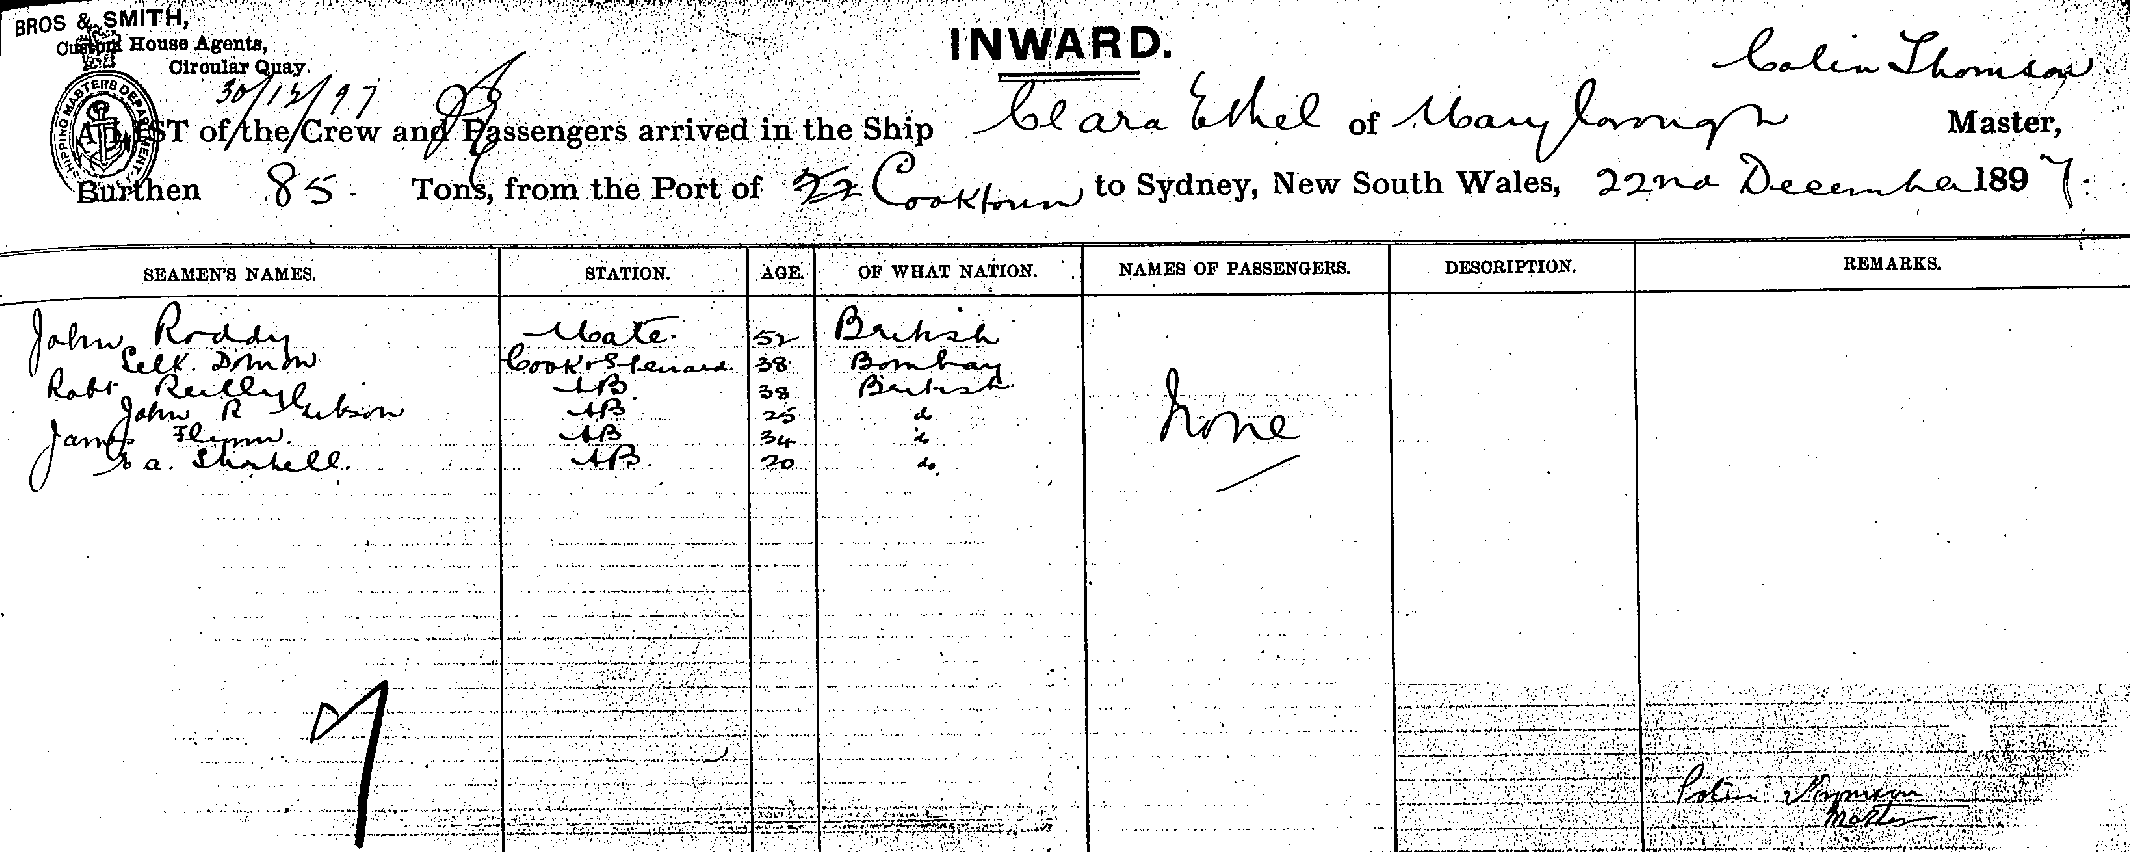 BROS & SMITH,
Custom House Agents,
Circular Quay.
30/12/97
INWARD.
Colin Thomson
A LIST of the Crew and Passengers arrived in the Ship Clara Ethel of Maryborough Master,
Burthen 85 Tons, from the Port of Cooktown to Sydney, New South Wales, 22nd December 1897.
SHIPPING MASTERS DEPARTMENT
SEAMEN'S NAMES. STATION. AGE. OF WHAT NATION. NAMES OF PASSENGERS. DESCRIPTION. REMARKS.
John Roddy Mate. 52 British
Cook & Steward 38 Bombay
Robt Reilly AB. 38 British
John R Gibson AB 25 do
James Flynn. AB 34 do
AB. 20 do.
None
7
Colin Thomson
Master